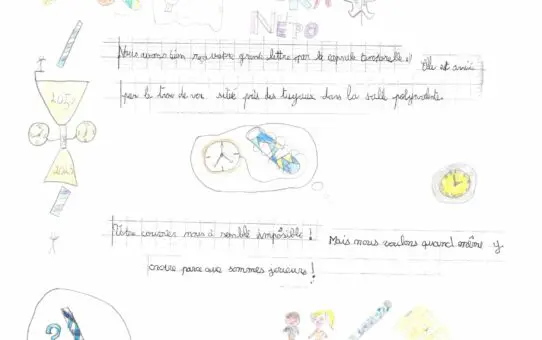 NÉPO
Nous avons bien reçu votre grande lettre par la capsule temporelle !! Elle est
par le trou de ver situé près des tuyaux dans la salle polyvalente.
2050
Votre courrier nous a semblé impossible ! Mais nous voulons quand même y
croire parce que sommes joyeuse !
?